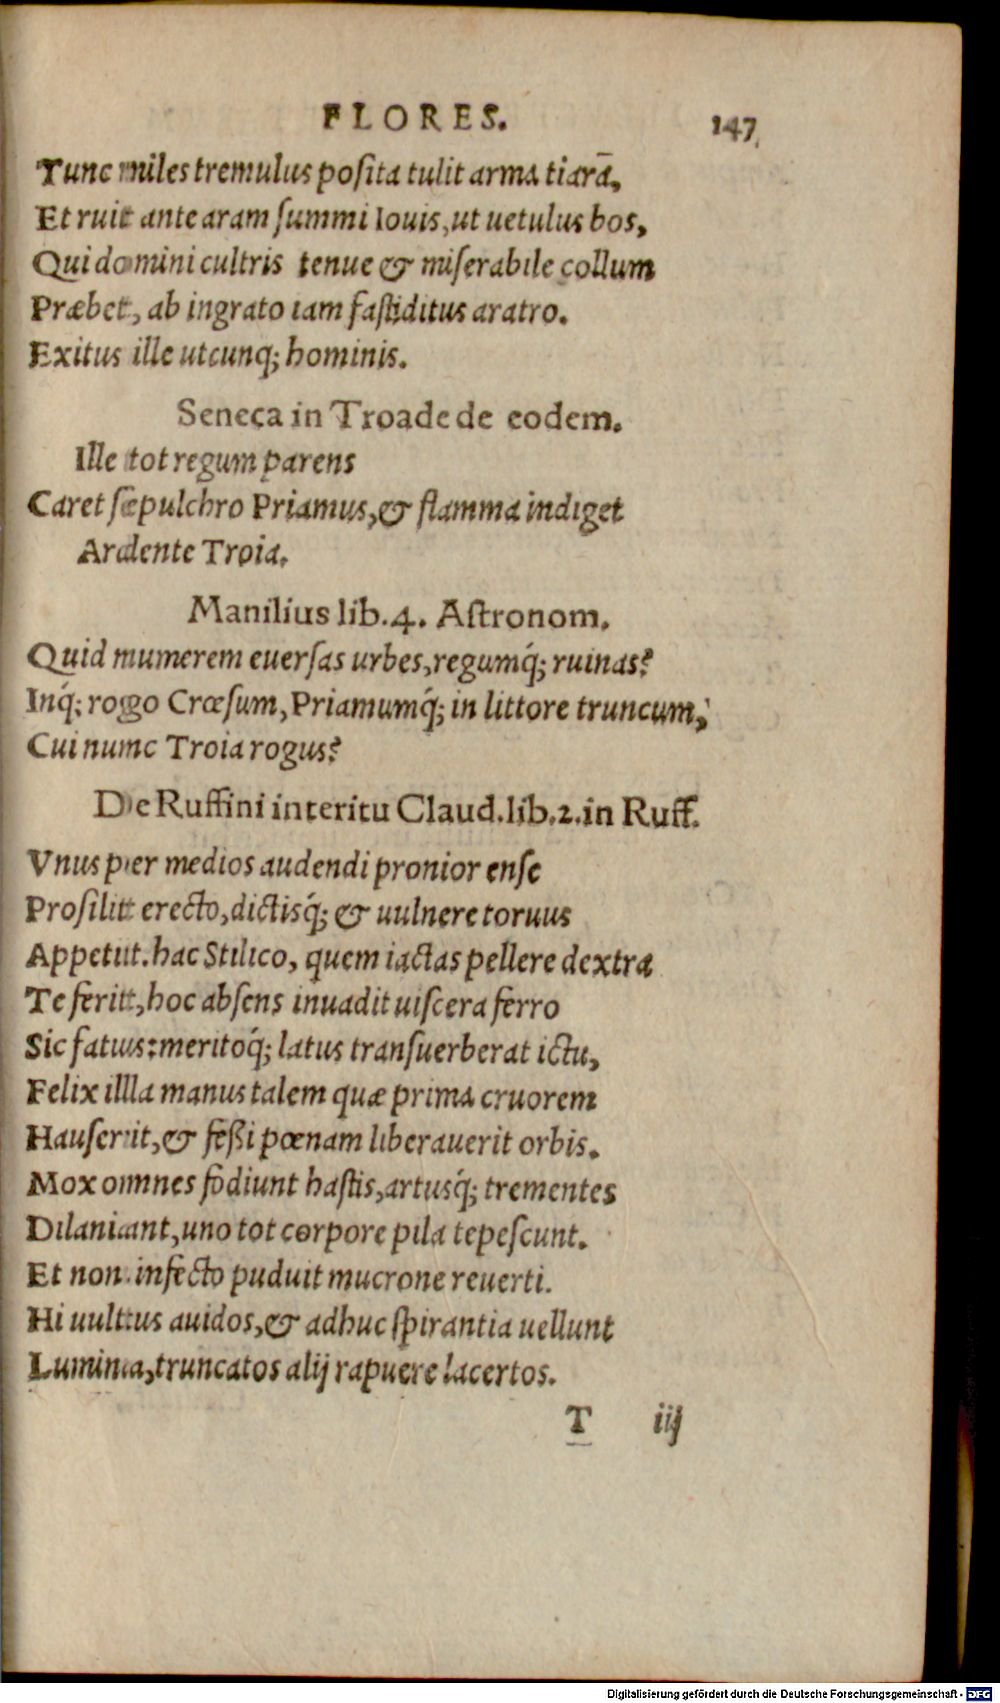 FLORES. 147
Tunc miles tremulus posita tulit arma tiarā,
Et ruit ante aram summi Iouis, ut uetulus bos,
Qui domini cultris tenue & miserabile collum
Præbet, ab ingrato iam fastiditus aratro.
Exitus ille utcunq; hominis.
Seneca in Troade de eodem.
Ille tot regum parens
Caret sepulchro Priamus, & flamma indiget
Ardente Troia.
Manilius lib. 4. Astronom.
Quid numerem euersas urbes, regumq́; ruinas?
Inq́; rogo Crœsum, Priamumq́; in littore truncum,
Cui nunc Troia rogus?
De Ruffini interitu Claud. lib. 2. in Ruff.
Vnus per medios audendi pronior ense
Prosilit erecto, dictisq́; & uulnere toruus
Appetit. hac Stilico, quem iactas pellere dextra
Te ferit, hoc absens inuadit uiscera ferro
Sic fatus: meritoq́; latus transuerberat ictu,
Felix illa manus talem quæ prima cruorem
Hauserit, & feßi pœnam liberauerit orbis.
Mox omnes fodiunt hastis, artusq́; trementes
Dilaniant, uno tot corpore pila tepescunt.
Et non infecto puduit mucrone reuerti.
Hi uultus auidos, & adhuc spirantia uellunt
Lumina, truncatos alij rapuere lacertos.
T iij
Digitalisierung gefördert durch die Deutsche Forschungsgemeinschaft - DFG